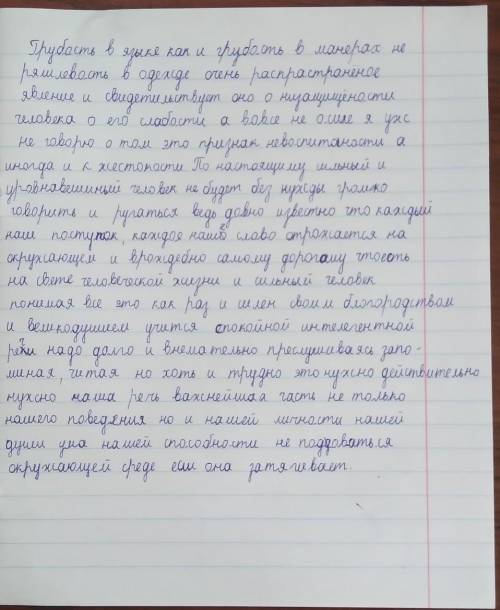 Грубасть в языке как и грубасть в манерах не
ряшлевасть в одежде очень распрастранёное
явление и свидетельствует оно о низащищёности
человека о его слабости а вовсе не о силе я уже
не говорю о том это признак невоспитаности а
иногда и к жестокости По настоящиму сильный и
уровнавешиный человек не будет без нужды громко
говорить и ругаться ведь довно известно что каждый
наш поступок, каждое нашо слово отрожается на
окружающем и врождебно самому дорогому чтоесть
на свете человеческой жизни и сильный человек
понимая все это как раз и силен своим благородством
и великодушием учится спокойной интелегентной
речи надо долго и внемательно преслушиваясь запо-
миная, читая но хоть и трудно это нужно действительно
нужно наша речь важнейшая часть не только
нашего поведения но и нашей личности нашей
души ума нашей способности не поддоваться
окружающей среде если она затягивает.